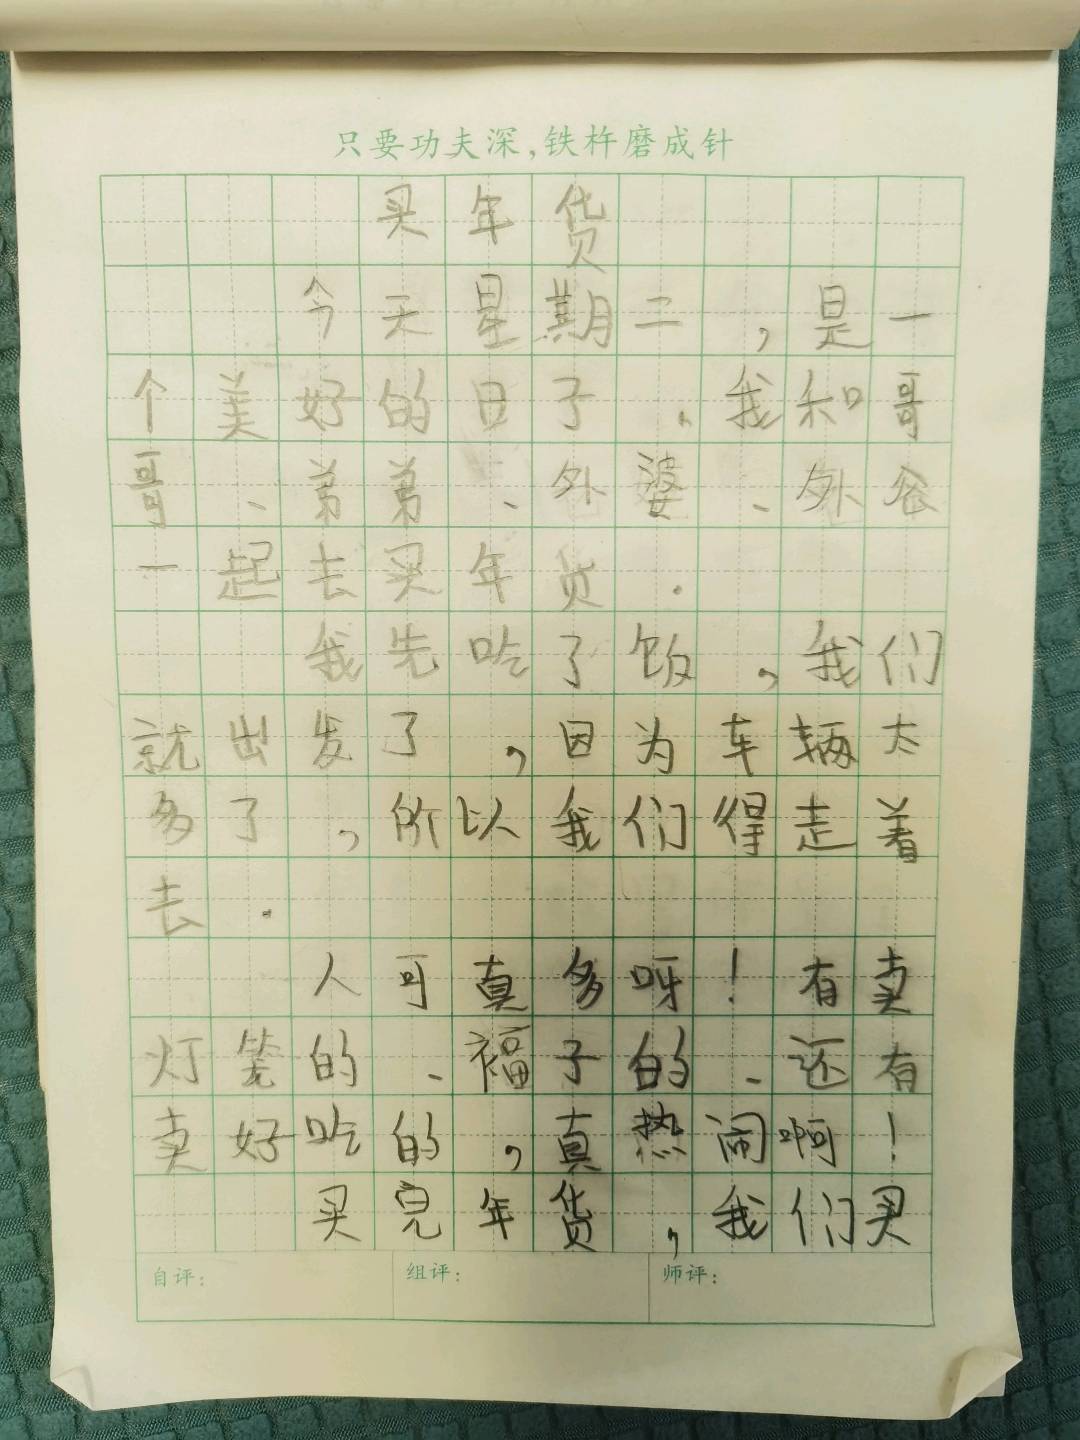 只要功夫深,铁杵磨成针
买年货
今天星期二,是一
个美好的日子.我和哥
哥、弟弟、外婆、外爸
一起去买年货.
我先吃了饭,我们
就出发了,因为车辆太
多了,所以我们得走着
去.
人可真多呀!有卖
灯笼的、福子的、还有
卖好吃的,真热闹啊!
买完年货,我们买
自评:
组评:
师评: